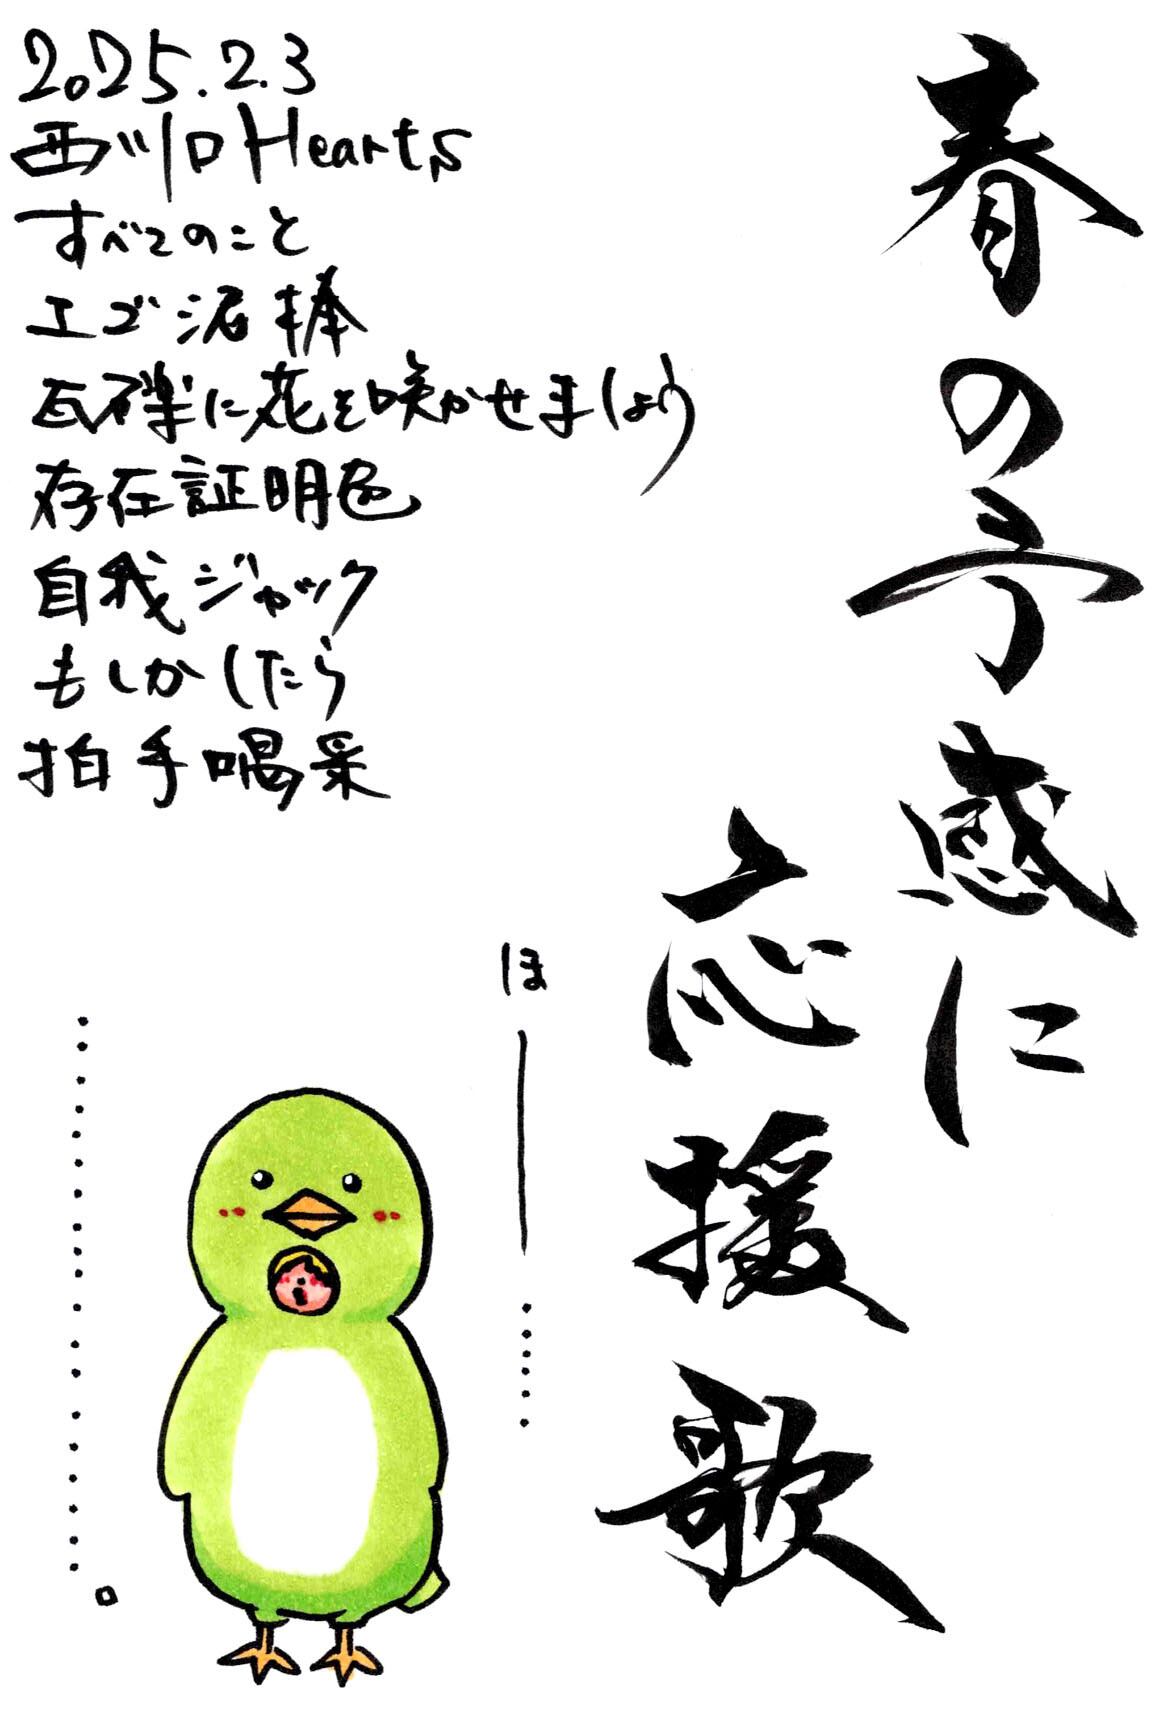 2025.2.3
西川口Hearts
すべてのこと
エゴ泥棒
瓦礫に花を咲かせましょう
存在証明色
自我ジャック
もしかしたら
拍手喝采
春の予感に
応援歌
ほ―……
………………。